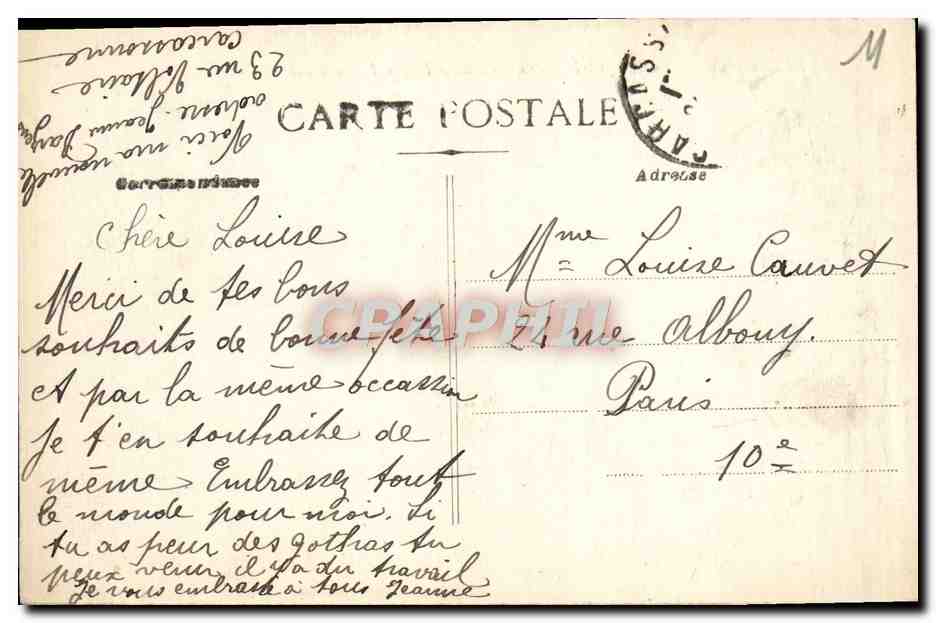 M
Voici ma nouvelle
adresse. Jeanne
23 rue Voltaire
Carcassonne
CARTE POSTALE
Correspondance
Adresse
Chère Louise
Merci de tes bons
souhaits de bonne fête
et par la même occassion
je t'en souhaite de
même Embrassez tout
le monde pour moi. Si
tu as peur des gothas tu
peux venir il y a du travail
Je vous embrasse à tous Jeanne
Mme Louise Cauvet
24 rue Albouy.
Paris
10e
CPAPHIL